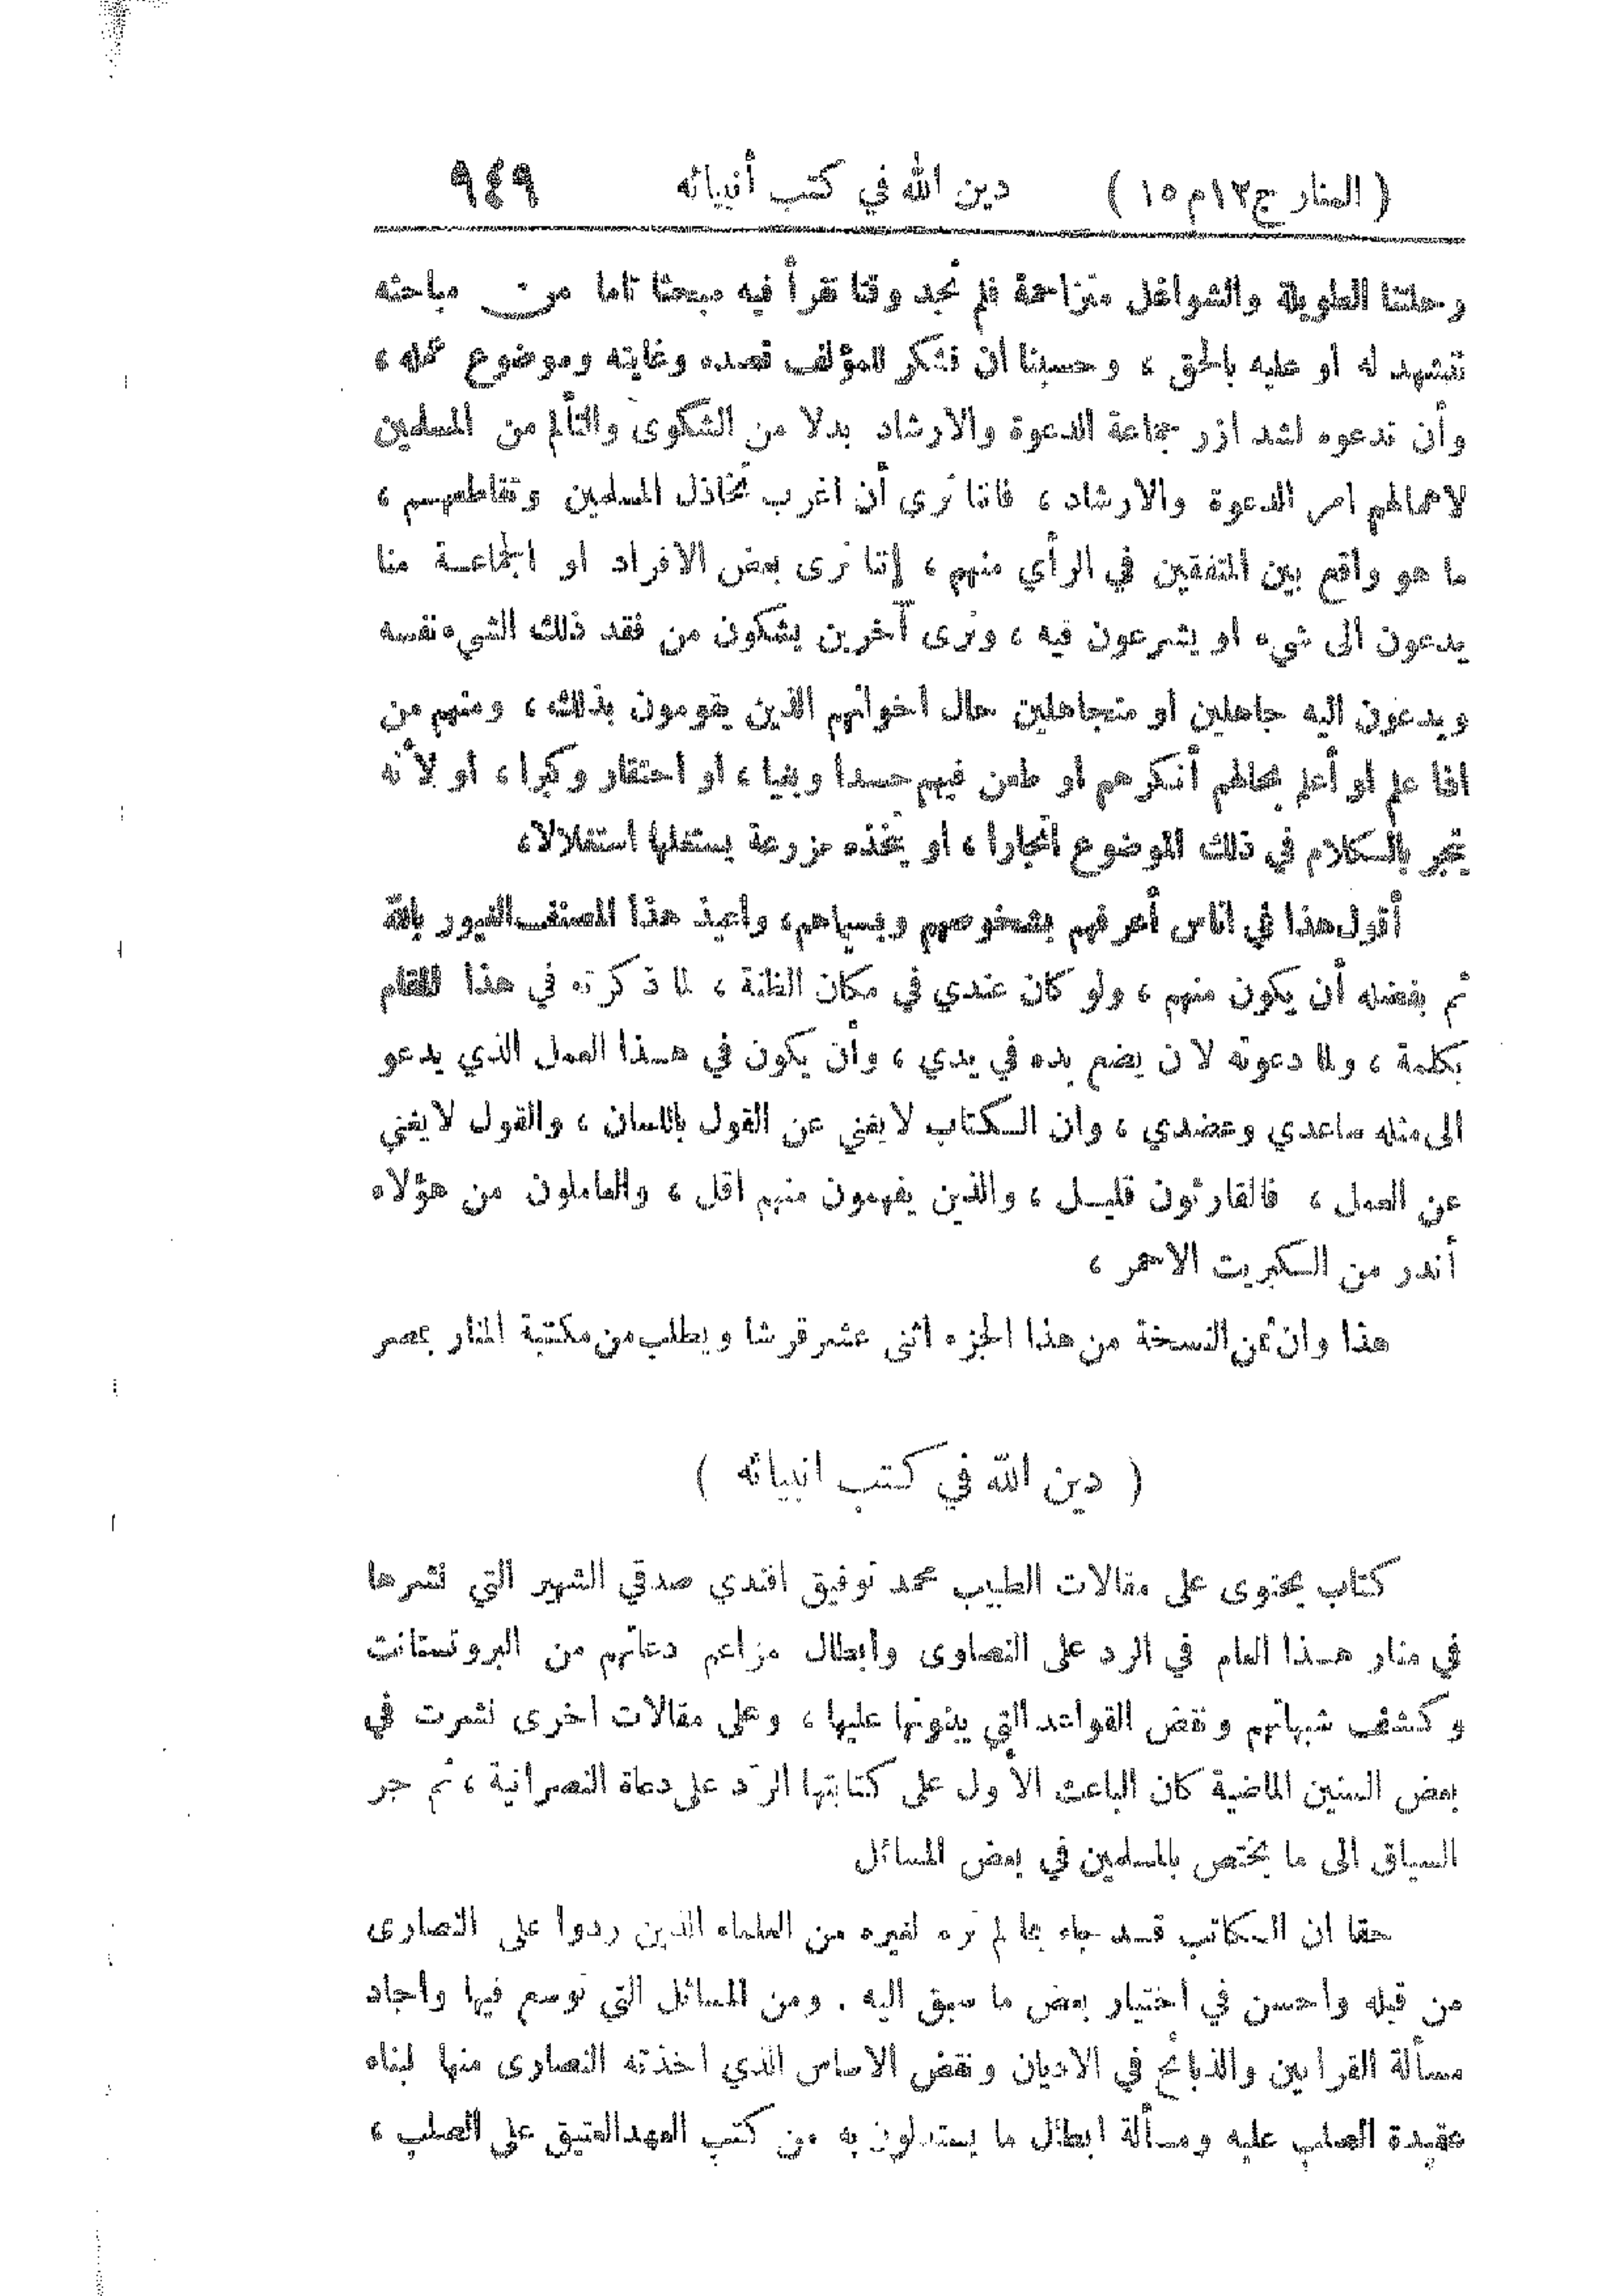 ( المنار ج١٢م١٥ ) دين الله في كتب أنبيائه ٩٤٩
رحلتنا الطويلة والشواغل متزاحمة فلم نجد وقتا نقرأ فيه مبحثا تاما من مباحثه
نشهد له او عليه بالحق ، وحسبنا أن نشكر للمؤلف قصده وغايته وموضوع عمله ،
وأن ندعوه لشد ازر جماعة الدعوة والارشاد بدلا من الشكوى والتألم من المسلمين
لاهمالهم امر الدعوة والارشاد ، فاننا نرى أن اغرب تخاذل المسلمين وتقاطعهم ،
ما هو واقع بين المتفقين في الرأي منهم ، إننا نرى بعض الافراد او الجماعة منا
يدعون الى شيء او يشرعون فيه ، ونرى آخرين يشكون من فقد ذلك الشيء نفسه
ويدعون اليه جاهلين او متجاهلين حال اخوانهم الذين يقومون بذلك ، ومنهم من
اذا علم او أعلم بحالهم أنكرهم او طعن فيهم حسدا وبغيا ، او احتقار وكبرا ، او لأنه
يتجر بالكلام في ذلك الموضوع اتجارا ، او يتخذه مزرعة يستغلها استغلالا ،
أقول هذا في اناس أعرفهم بشخوصهم وبسياهم ، واعيذ هذا المصنف الغيور بالله
ثم بفضله أن يكون منهم ، ولو كان عندي في مكان الظنة ، لما ذكرته في هذا المقام
بكلمة ، ولما دعوته لان يضم يده في يدي ، وأن يكون في هذا العمل الذي يدعو
الى مثله ساعدي وعضدي ، وان الكتاب لا يغني عن القول باللسان ، والقول لا يغني
عن العمل ، فالقارئون قليل ، والذين يفهمون منهم اقل ، والعاملون من هؤلاء
أندر من الكبريت الاحمر ،
هذا وان ثمن النسخة من هذا الجزء اثنى عشر قرشا ويطلب من مكتبة المنار بمصر
( دين الله في كتب انبيائه )
كتاب يحتوى على مقالات الطبيب محمد توفيق افندي صدقي الشهير التي نشرها
في منار هذا العام في الرد على النصاوى وابطال مزاعم دعاتهم من البروتستانت
وكشف شبهاتهم ونقض القواعد التي يبنونها عليها ، وعلى مقالات اخرى نشرت في
بعض السنين الماضية كان الباعث الأول على كتابتها الرد على دعاة النصرانية ، ثم جر
السياق الى ما يختص بالمسلمين في بعض المسائل
حقا ان الكاتب قد جاء بما لم نره لغيره من العلماء الذين ردوا على النصارى
من قبله واحسن في اختيار بعض ما سبق اليه . ومن المسائل التي توسع فيها واجاد
مسألة القرابين والذبائح في الاديان ونقض الاساس الذي اخذته النصارى منها لبناء
عقيدة الصلب عليه ومسألة ابطال ما يستدلون به من كتب العهد العتيق على الصلب ،